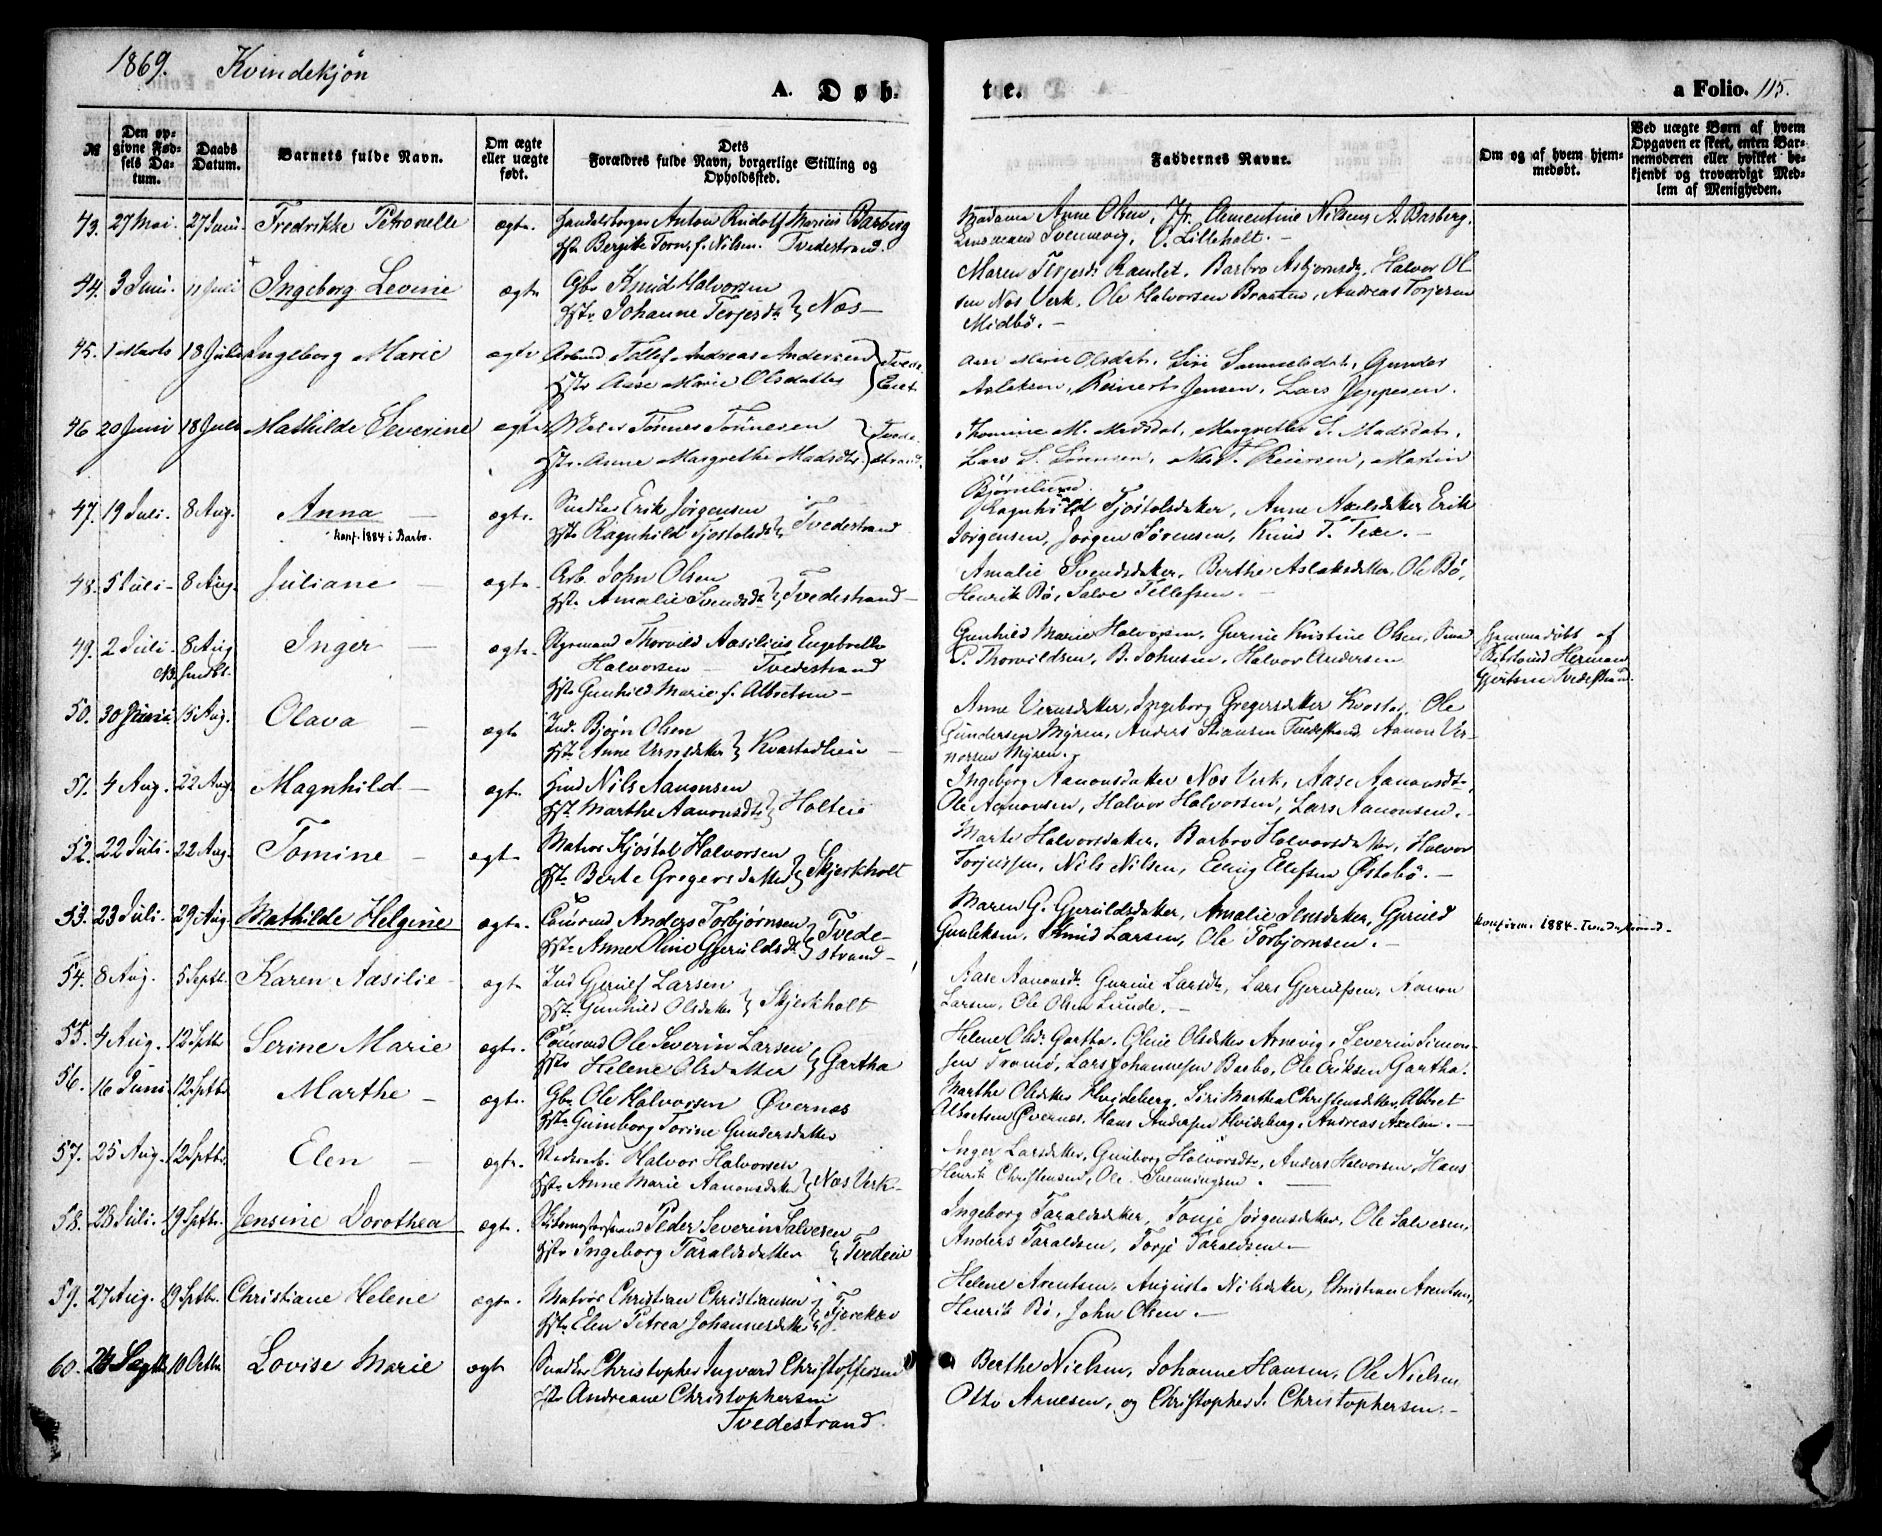 1869. Kvindekjøn
A. Døb-
te.
a Folio. 115.
№
Den op-
givne Fød-
sels Da-
tum.
Daabs
Datum.
Barnets fulde Navn.
Om ægte
eller uægte
født.
Dets
Forældres fulde Navn, borgerlige Stilling og
Opholdssted.
Faddernes Navne.
Om og af hvem hjem-
medøbt.
Ved uægte Børn af hvem
Opgaven er skeet, enten Bar-
nemoderen eller hvilket be-
kjendt og troværdigt Med-
lem af Menigheden.
43. 27 Mai 27 Juni Fredrikke Petronelle ægte. Anton Rudolf Marius Barberg
Hstr Bergite Torine f. Nilsen. Tvedestrand.
Madame Anne Olsen, Jfr. Clementine Nilsen, A. Basberg,
Svennevig, O. Lilleholt. -
44. 3 Juni. 11 Juli Ingeborg Levine ægte Gbr Knud Halvorsen
Hstr. Johanne Terjesdt } Næs -
Maren Terjesdt Randet. Barbro Asbjornsdt, Halvor Ol
sen Næs Verk, Ole Halvorsen Braaten, Andreas Torjesen
Midbö. -
45. 1 Marts 18 Juli Ingeborg Marie ægte Arbmd. Tellef Andreas Andersen
Hstr Aase Marie Olsdatter } Tvede-
Aase Marie Olsdat. Siri Samuelsdat, Gunder
Aslaksen, Reinert Jensen, Lars Jeppesen.
46 20 Juni 18 Juli Mathilde Severine ægte Tönnes Tönnesen
Hstr. Anne Margrethe Madsdtr. } Tvede-
strand.
Thomine M. Madsdat, Margrethe S. Madsdat.
Lars S. Sörensen, Nils T. Reiersen, Martin
Björnelund.
47. 19 Juli. 8 Aug. Anna - ægte. Snedker Erik Jörgensen
Konf. 1884 i Barbo.
Hstr Ragnhild Tjostolsdt } Tvedestrand
Ragnhild Tjöstolsdatter, Anne Axelsdatter Erik
Jörgensen, Jörgen Sörensen, Knud T. Texe. -
48. 5 Juli - 8 Aug. Juliane - ægte. Arb. John Olsen
Hstr Amalie Svendsdt } Tvedestrand -
Amalie Svendsdatter, Berthe Aslaksdatter, Ole Bö,
Henrik Bö, Salve Tellefsen. -
49. 2 Juli - 8 Aug Inger - ægte. Styrmand Thorvild Aasilius Engebrekt
Halvorsen - Tvedestrand
Hstr Gunhild Marie f. Albretsen -
Gunhild Marie Halvorsen, Gurine Kristine Olsen,
P. Thorvildsen, B. Johnsen, Halvor Andersen
Hjemmedöbt af
Herman
Gjertsen Tvedestrand.
50. 30 Juni 15 Aug. Olava - ægte Ind. Björn Olsen
Hstr. Anne Vernsdatter } Kvastadheie -
Anne Vernsdatter, Ingeborg Gregersdatter Kvastad, Ole
Gundersen Myren, Anders Stiansen Tvedestrand Aanon Ver-
norsen Myren.
51. 4 Aug. 22 Aug. Magnhild - ægte. Hmd Nils Aanonsen
Hstr Marthe Aanonsdt } Holteie
Ingeborg Aanonsdatter Næs Verk, Aase Aanonsdtr,
Ole Aanonsen, Halvor Halvorsen, Lars Aanonsen. -
52. 22 Juli. 22 Aug. Tomine - ægte Matros Kjöstol Halvorsen
Hstr. Berte Gregersdatter } Skjerkholt
Marte Halvorsdatter, Barbro Halvorsdatter, Halvor
Torjussen, Nils Nilsen, Elling Ellefsen Östebö. -
53. 23 Juli. 29 Aug. Mathilde Helgine ægte. Tömrmd Anders Torbjörnsen
Hstr. Anne Oline Gjeruldsdt } Tvede-
strand -
Maren G. Gjeruldsdatter, Amalie Ilsesdatter, Gjeruld
Gunleksen, Knud Larsen, Ole Torbjornsen. -
konfirm. 1884 Tvedestrand -
54. 8 Aug. 5 Septb. Karen Aasilie - ægte Ind Gjerulf Larsen
Hstr. Gunhild Olsdatter } Skjerkholt
Aase Aanonsdt Gurine Larsdtr, Lars Gjerulfsen, Aanon
Larsen, Ole Olsen Lunde. -
55. 4 Aug. 12 Septb Serine Marie ægte. Tömrmd Ole Severin Larsen
Hstr Helene Olsdatter } Gartha
Helene Olsdt Gartha, Oline Olsdatter Arnevig, Severin Simon-
sen Tromö, Lars Johannesen Barbo, Ole Eriksen Gartha.
56. 16 Juni 12 Septb. Marthe - ægte. Gbr Ole Halvorsen Övernæs
Hstr Gunborg Torine Gundersdatter
Marthe Olsdatter Hvideberg, Siri Martha Christensdatter, Albret
Albertsen Övernæs, Hans Andersen Hvideberg, Andreas Axelsen. -
57. 25 Aug. 12 Septb. Elen - ægte. Halvor Halvorsen
Hstr Anne Marie Aanonsdatter } Næs Verk -
Inger Larsdatter, Gunborg Halvorsdtr, Anders Halvorsen, Hans
Henrik Christensen, Ole Svenningsen. -
58. 28 Juli. 19 Septb. Jensine Dorothea ægte. Peder Severin Salvesen
Hstr Ingeborg Taraldsdatter } Tvedeie
Ingeborg Taraldsdatter, Tonje Jörgensdatter, Ole Salvesen,
Anders Taraldsen, Torje Taraldsen -
59. 27 Aug. 19 Septb. Christiane Helene ægte. Matros Christian Christiansen
Hstr Elen Petrea Johannesdatter } Tjerekær
Helene Arentsen, Augusta Nilsdatter, Christian Arentsen,
Henrik Bö, John Olsen. -
60. Septb 10 Octbr Lovise Marie ægte Snedker Christopher Ingvard Christoffersen
Hstr Andreane Christophersen
Tvedestrand.
Berthe Nielsen, Johanne Hansen, Ole Nielsen
Otto Arnesen, og Christopher I. Christophersen. -